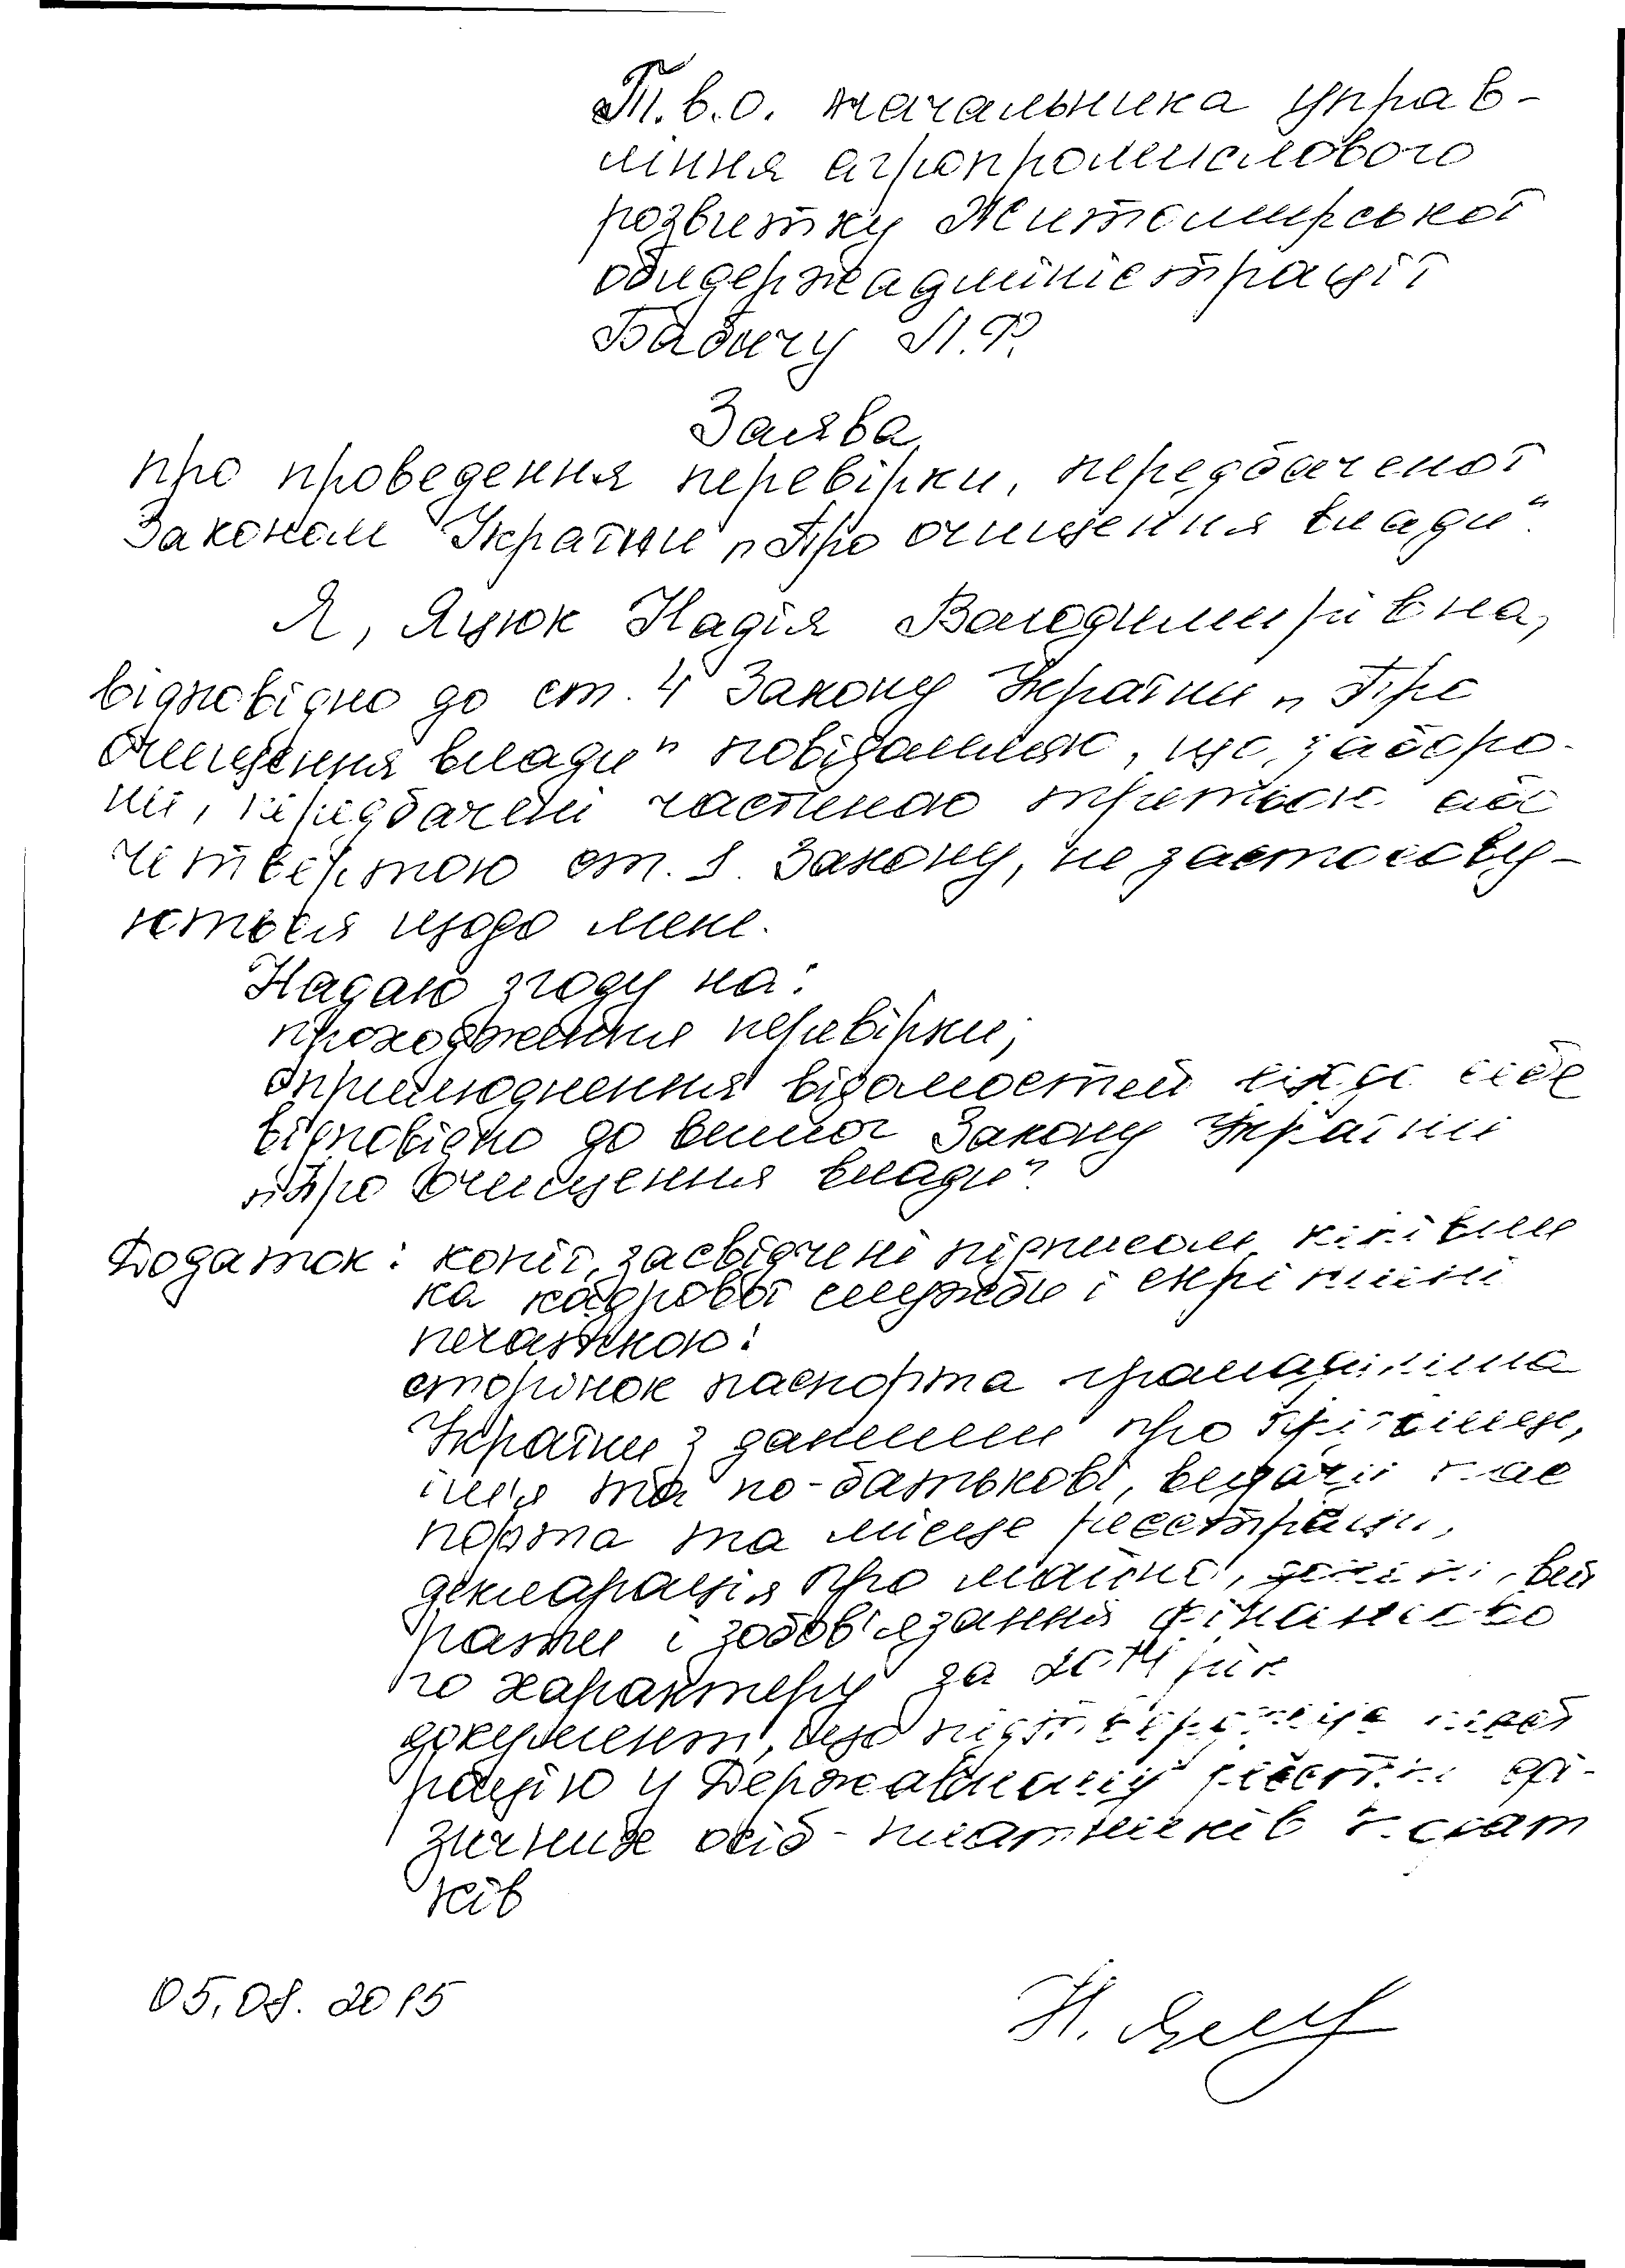 Т.в.о. начальника управ-
ління агропромислового
розвитку Житомирської
облдержадміністрації
Бабичу П.Ф.
Заява
про проведення перевірки, передбаченої
Законом України „Про очищення влади“.
Я, Яцюк Надія Володимирівна,
відповідно до ст. 4 Закону України „Про
очищення влади“ повідомляю, що заборо-
ни, передбачені частиною третьою або
четвертою ст. 1 Закону, не застосову-
ються щодо мене.
Надаю згоду на:
проходження перевірки;
оприлюднення відомостей щодо себе
відповідно до вимог Закону України
„Про очищення влади“.
Додаток: копії, засвідчені підписом керівни
ка кадрової служби і скріплені
печаткою:
сторінок паспорта громадянина
України з даними про прізвище,
ім'я та по-батькові, видачу пас
порта та місце реєстрації,
декларація про майно, доходи, вит
рати і зобов'язання фінансово
го характеру за 2014 рік
документ, що підтверджує реєст
рацію у Державному реєстрі фі-
зичних осіб - платників подат
ків
05.08.2015